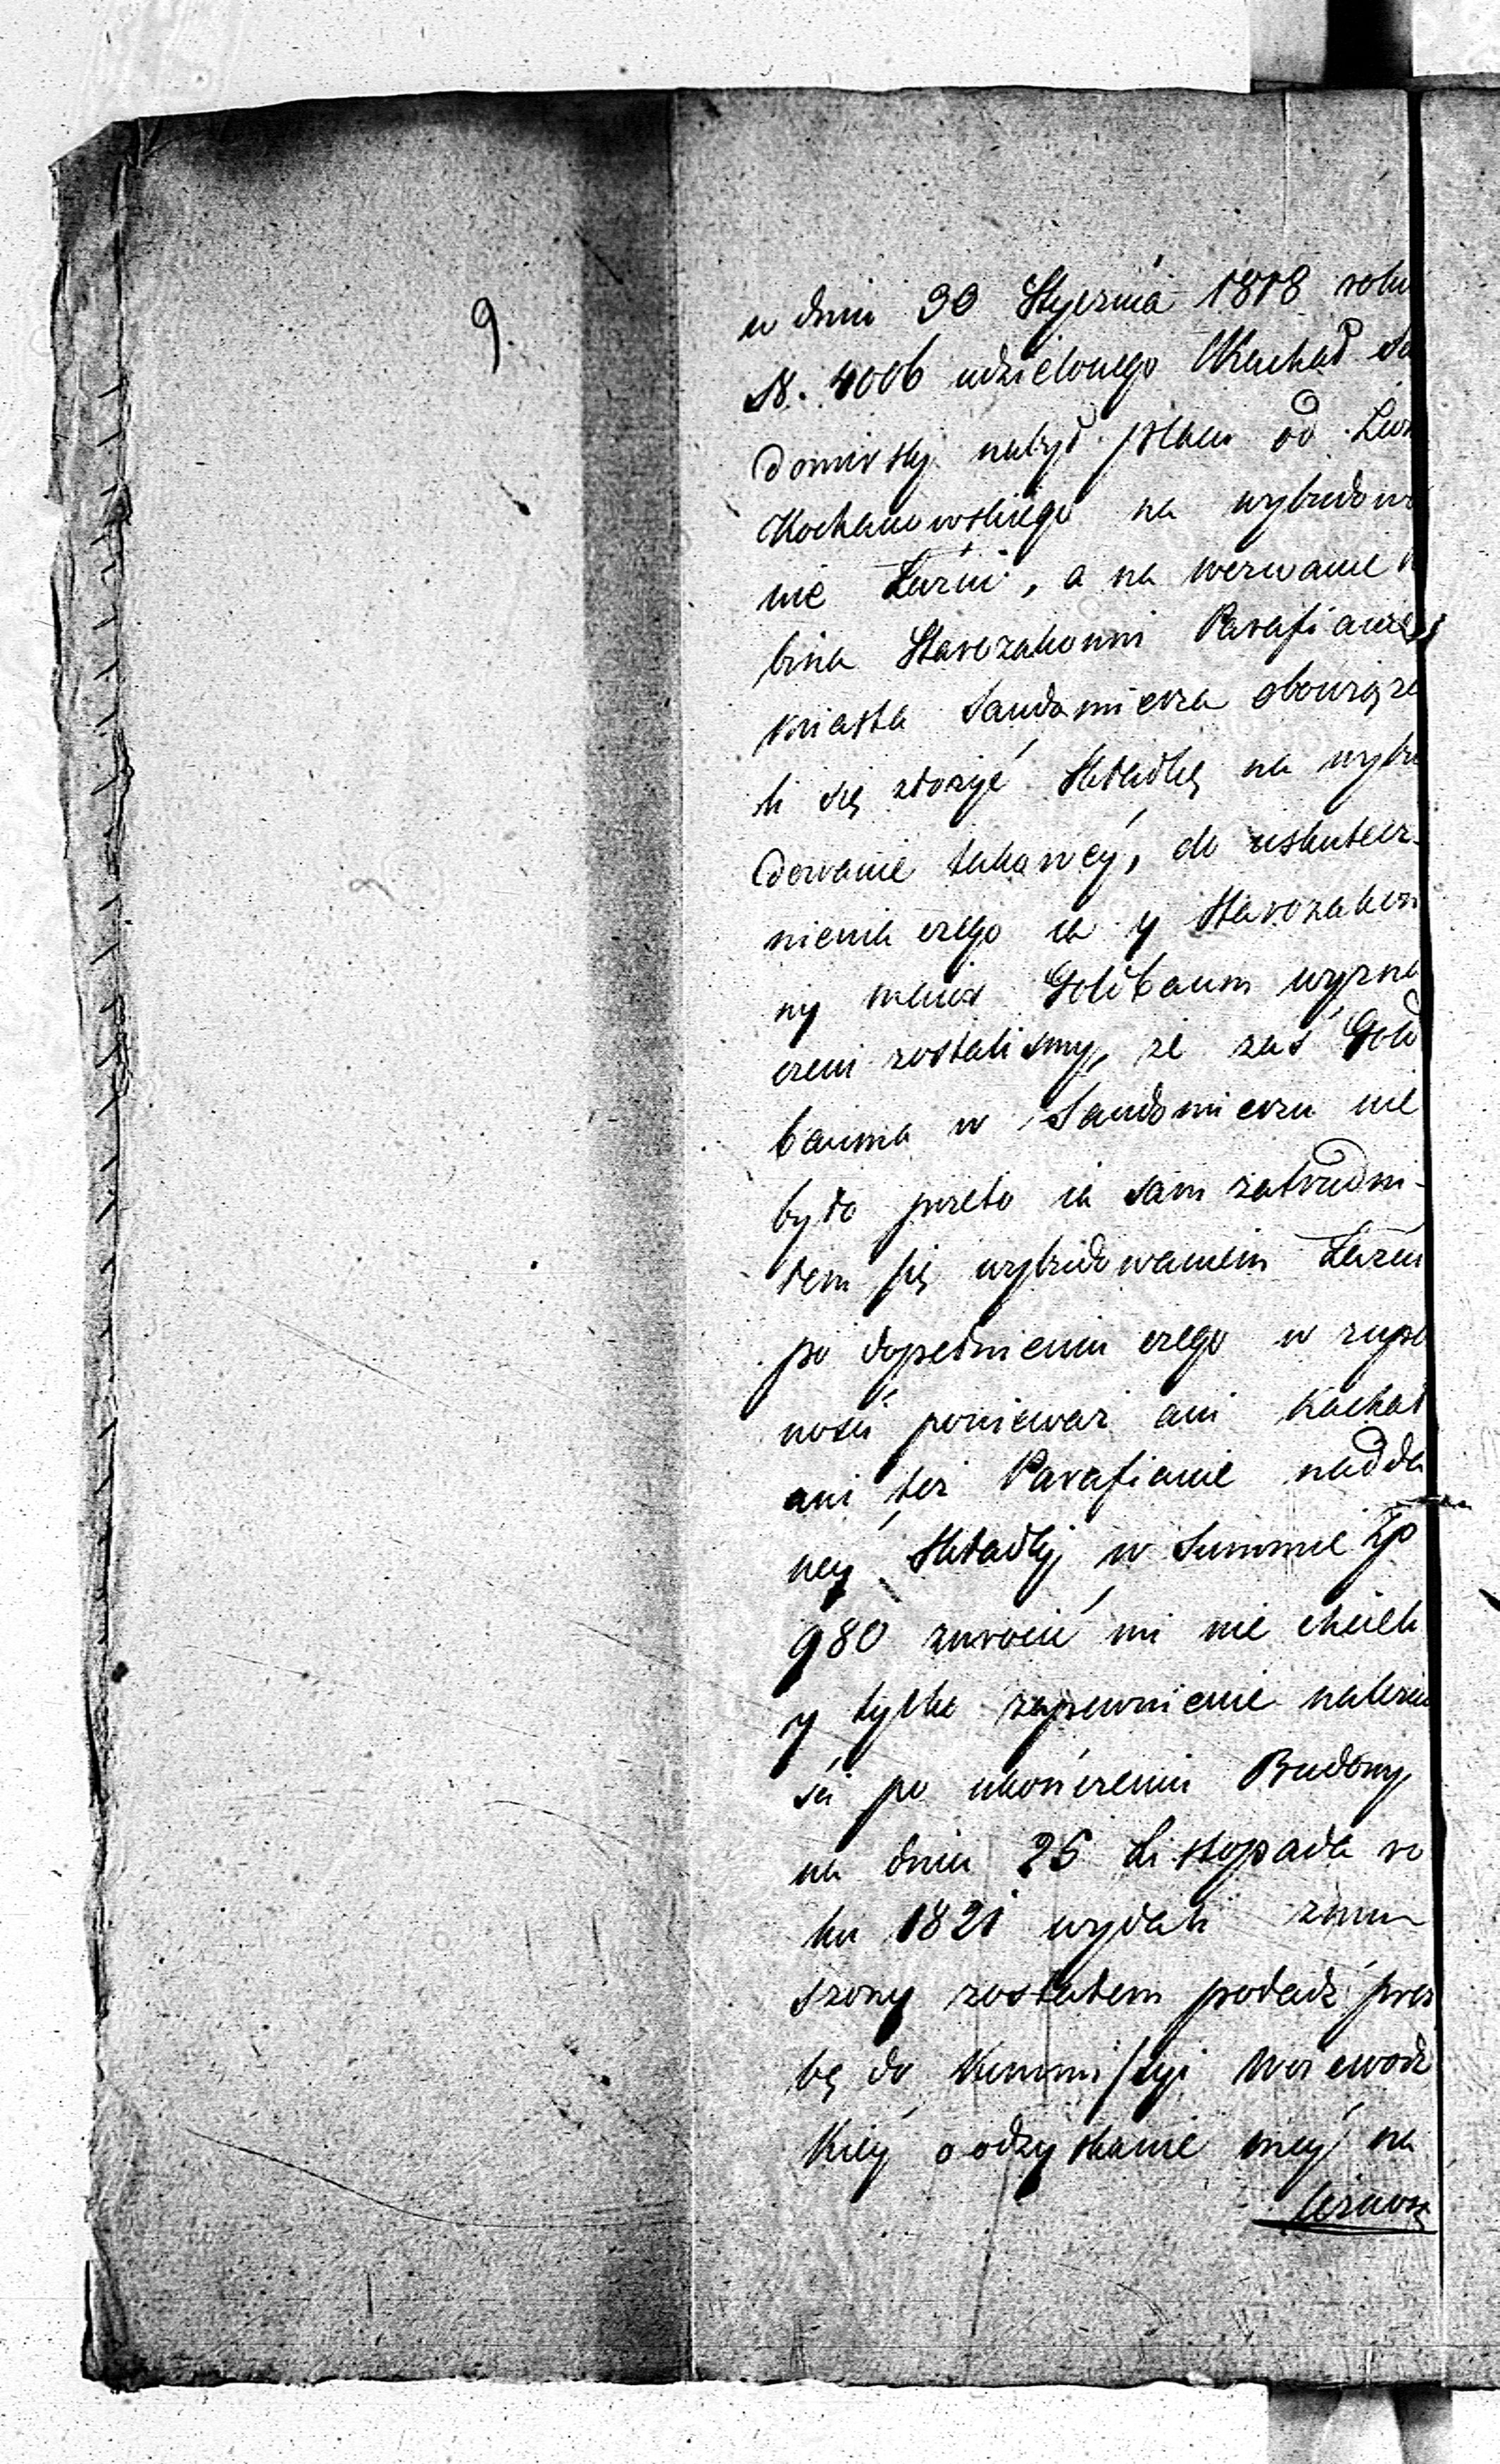 9.
w dniu 30 Stycznia 1818 roku
N. 4006 udzielonego Kachał San
domirski nabył plac od Leon
Kochanowskiego na wybudowa
nie Łaźni, a na wezwanie
bina Starozakonni Parafianie
miasta Sandomierza obowiąza
li się złożyć Składkę na wybu
dowanie takowéy, do uskutecz-
nienia czego ia y Starozakon
ny Golcbaum wyzna
czeni zostalismy, że zaś Golc
bauma w Sandomierzu nie
było przeto ia sam zatrudni-
łem się wybudowaniem Łazni
po dopełnieniu czego w zupeł
ności ponieważ ani Kachał
ani też Parafianie nadda
ney Składki w Summie Zp
980 zwrocić mi nie chcieli
y tylko zapewnienie należno
ści po ukończeniu Budowy
na dniu 26 Listopada ro
ku 1821 wydali zmu
szony zostałem podadź proz
bę do Kommissyi Woiewodz
kiéy o odzyskanie méy na
leżnosci